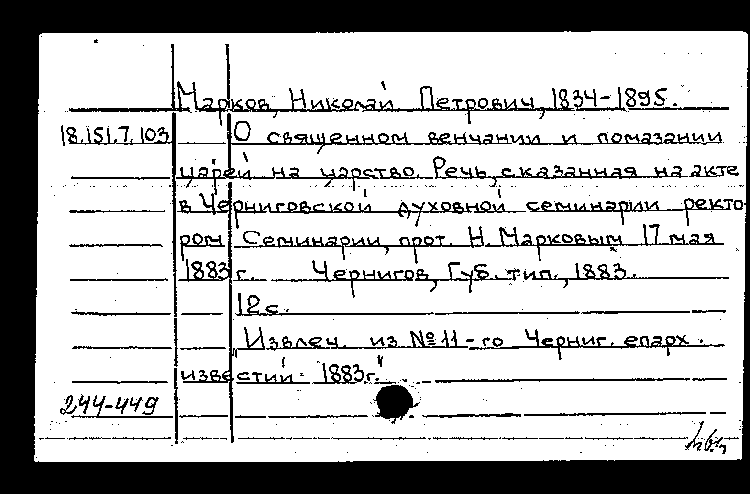 Марков, Николай Петрович, 1834-1895.
18.151.7.103 О священном венчании и помазании
царей на царство. Речь, сказанная на акте
в Черниговской духовной семинарии ректо-
ром Семинарии, прот. Н. Марковым 17 мая
1883 г. Чернигов, Губ. тип., 1883.
12 с.
"Извлеч. из № 11-го Черниг. епарх.
известий 1883г."
244-449